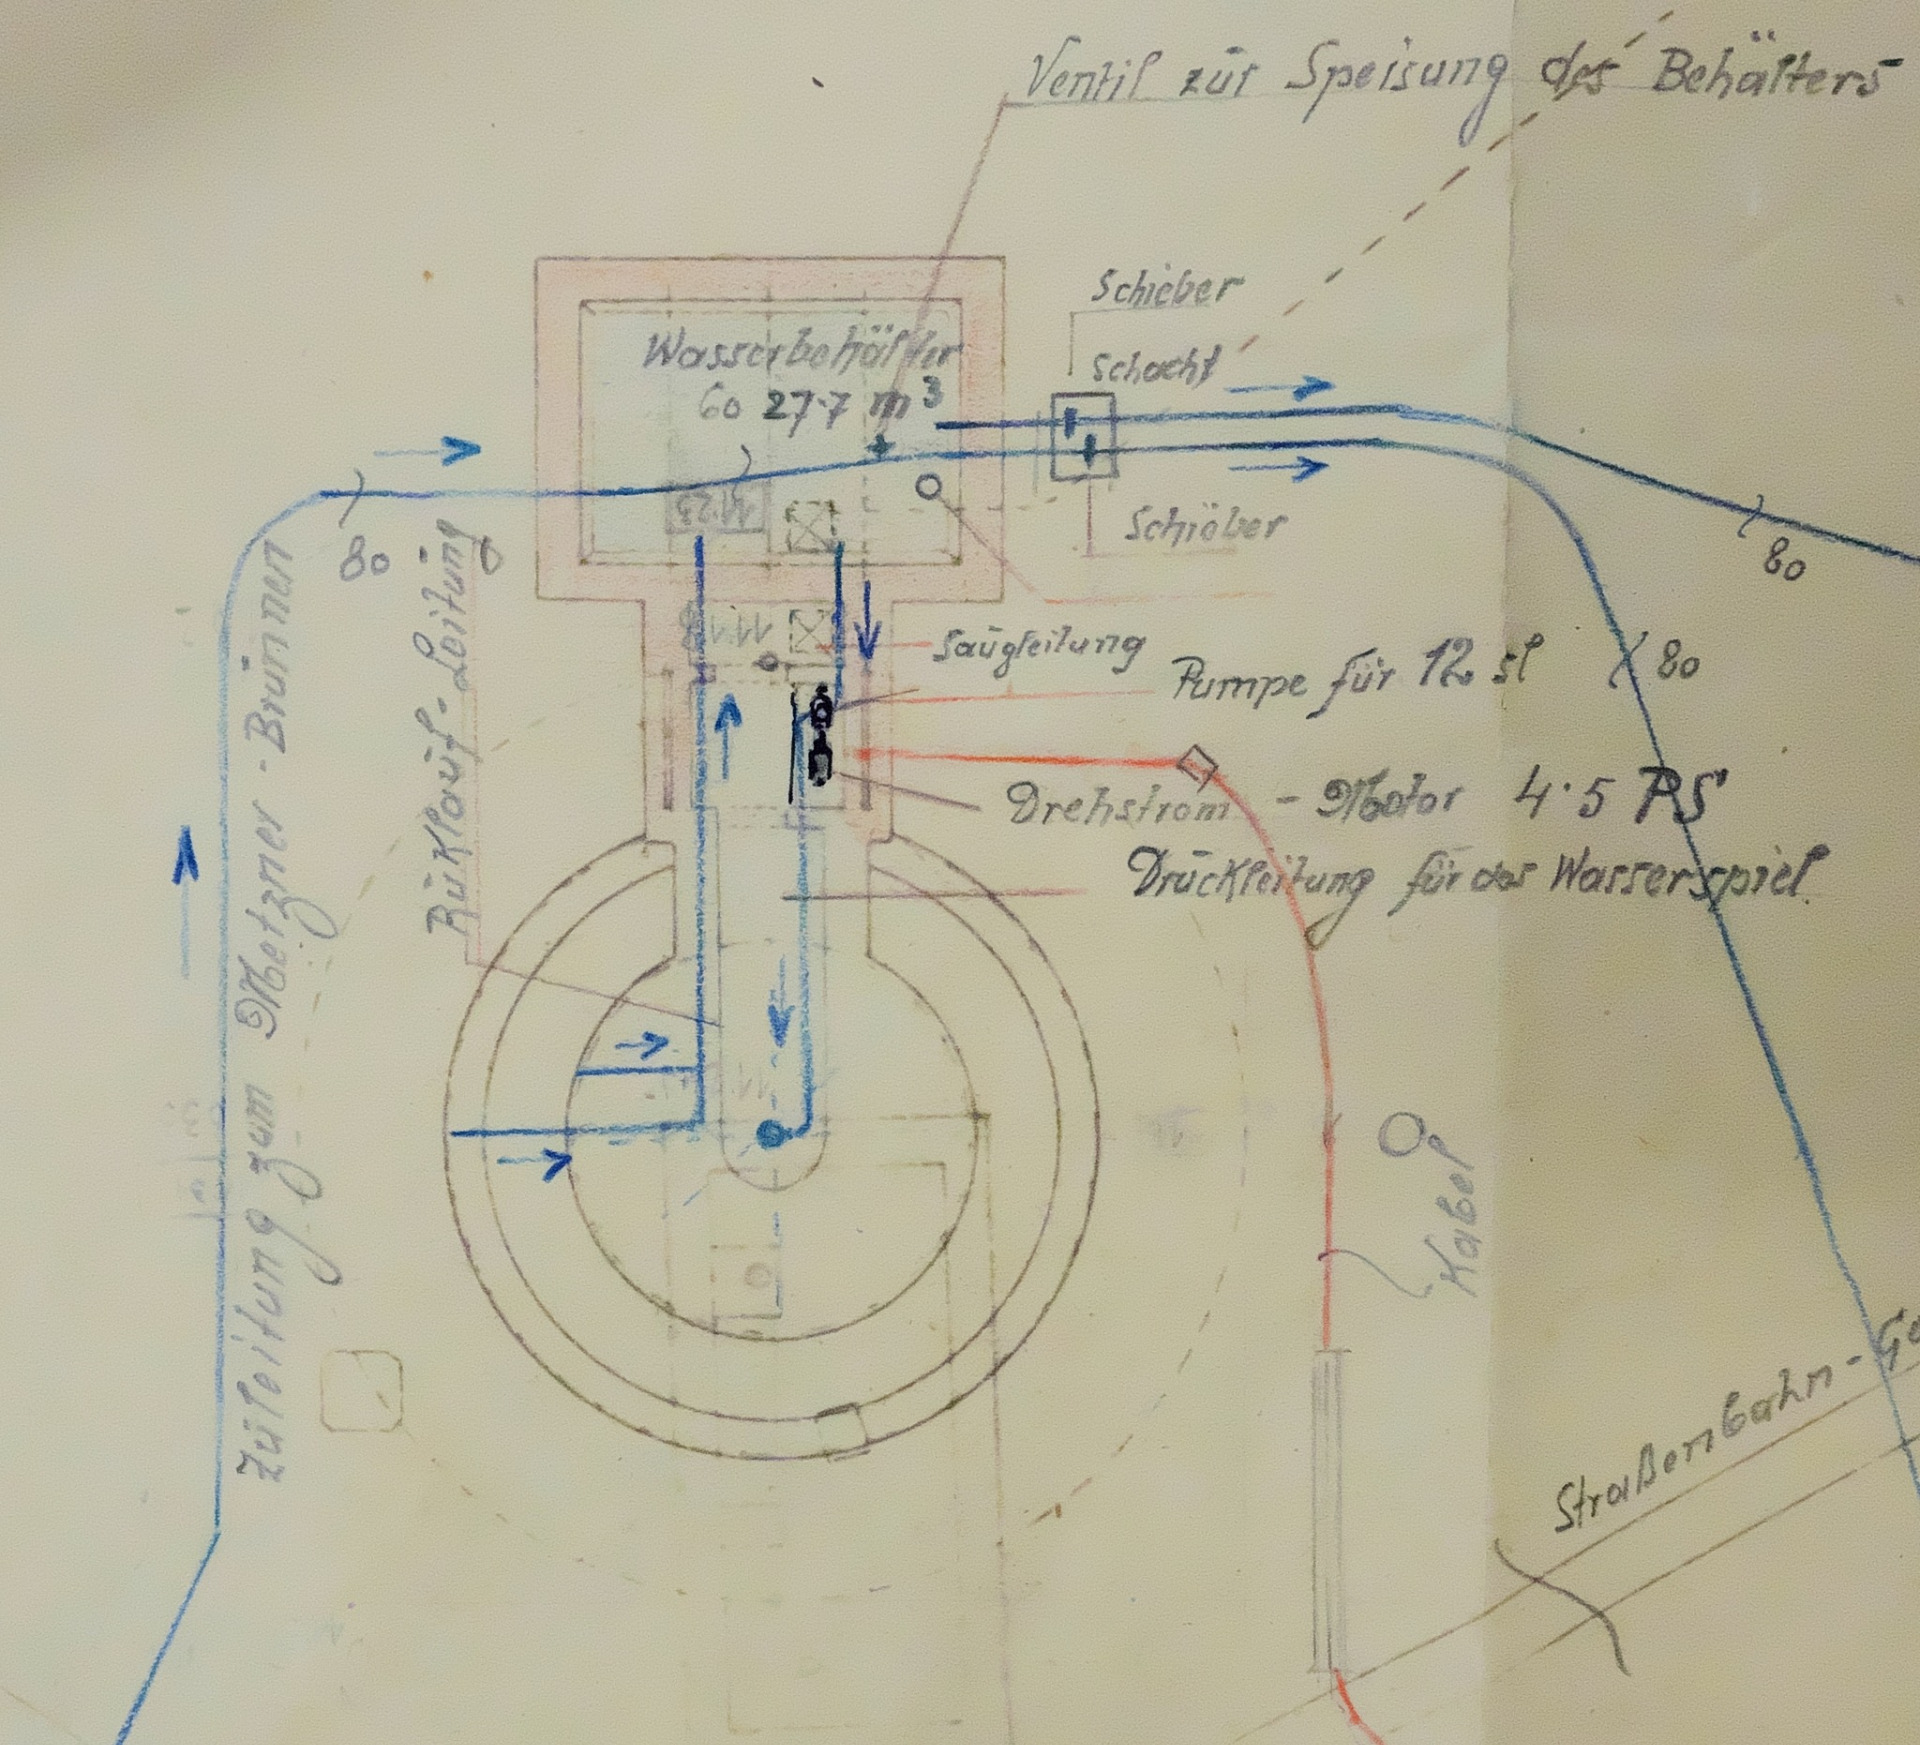 Ventil zür Speisung des Behälters
Schieber
Schacht
Wasserbehälter
60 27.7 m³
Schieber
80
80
Zuleitung zum Metzner-Brunnen
Rüklauf-Leitung
Saugleitung
Pumpe für 12 sl
80
Drehstrom - Motor 4.5 PS
Druckleitung für das Wasserspiel
Kabel